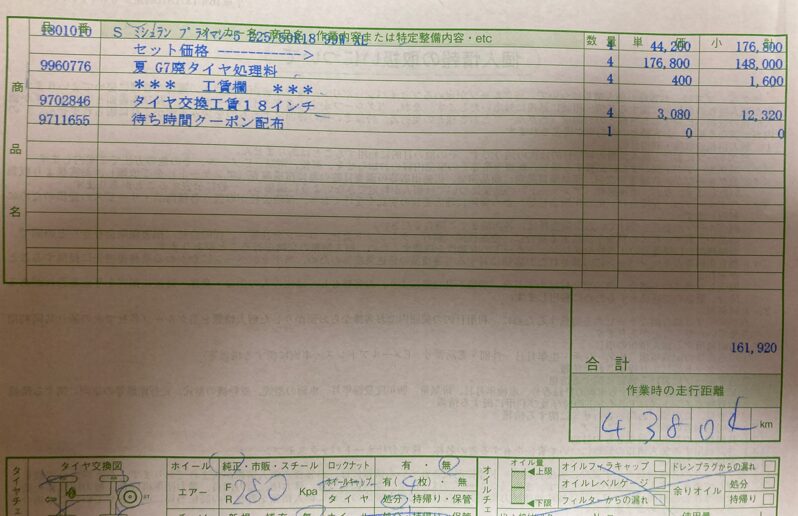 品番 メーカー名、商品名、作業内容または特定整備内容・etc 数量 単 小計
1801010 S ミシュラン プライマシー5 225/50R18 99W XL 4 44,200 176,800
セット価格 ------------> 4 176,800 148,000
9960776 夏 G7廃タイヤ処理料 4 400 1,600
*** 工賃欄 ***
9702846 タイヤ交換工賃18インチ 4 3,080 12,320
9711655 待ち時間クーポン配布 1 0 0
商品名
161,920
合計
作業時の走行距離
4380 km
タイヤ交換図 ホイール 純正・市販・スチール ロックナット 有・無 オイル量 オイルフィラキャップ ドレンプラグからの漏れ
エアー F R 280 Kpa ホイールキャップ 有(4枚)・無 上限 オイルレベルゲージ 余りオイル 処分
タイヤ 処分・持帰り・保管 下限 フィルターからの漏れ 持帰り